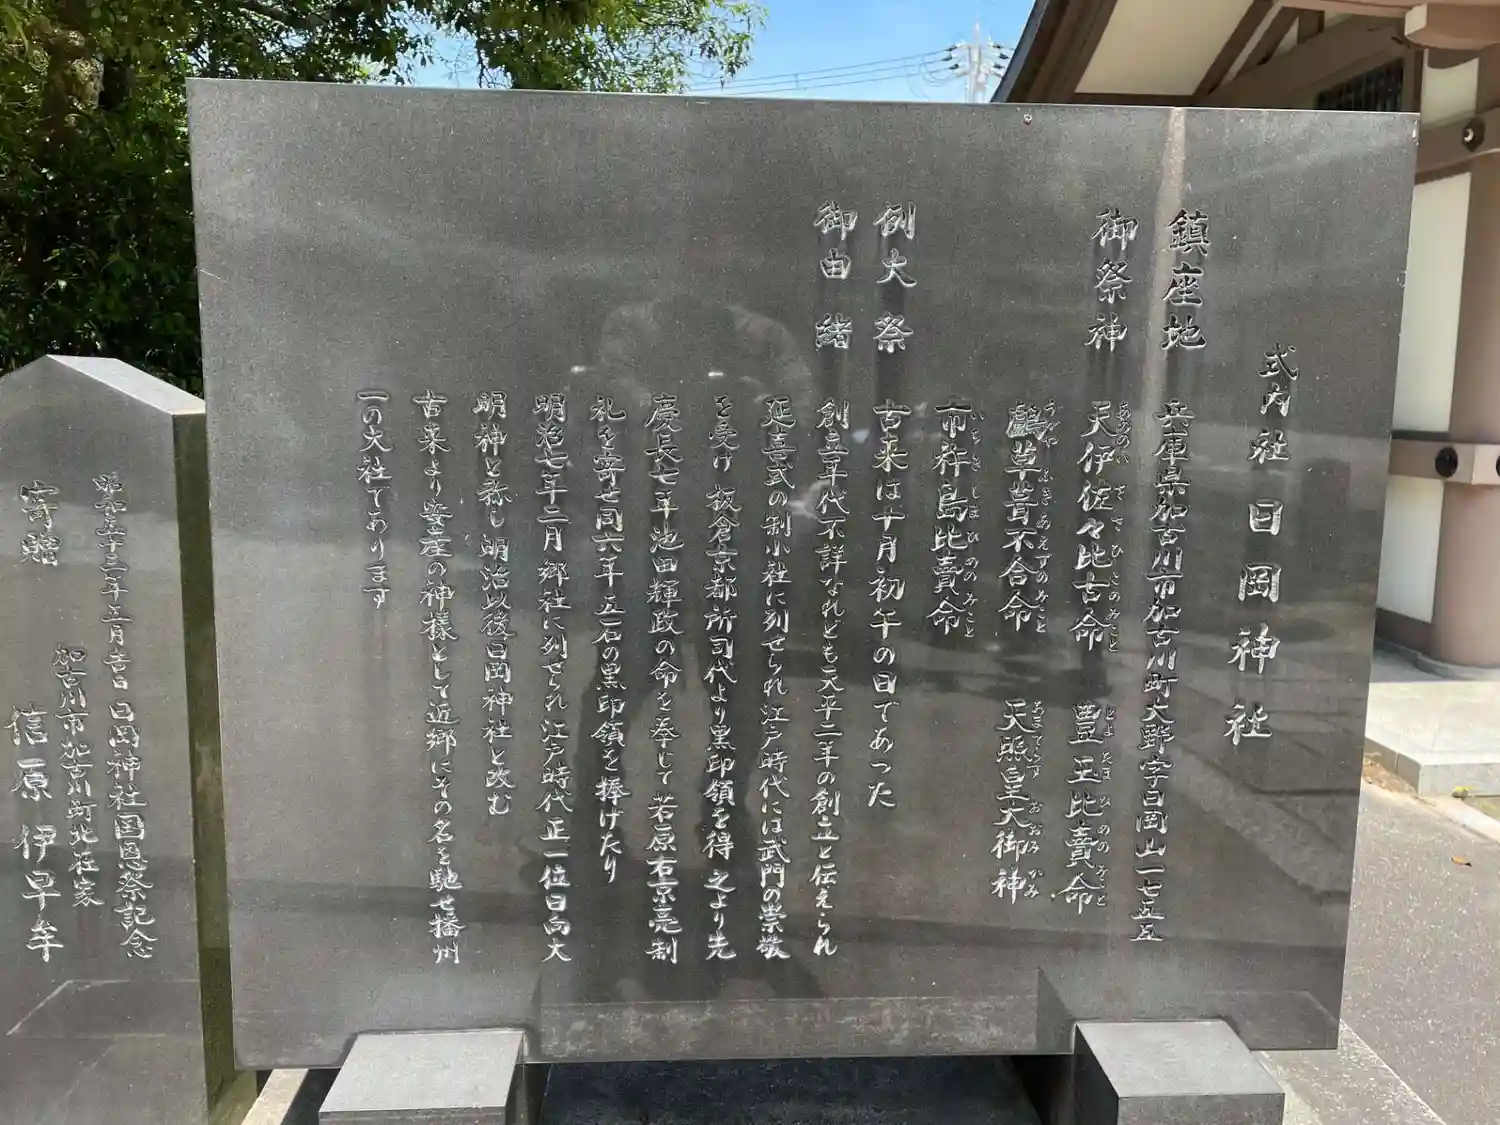 式内社 日岡神社
鎮座地 兵庫県加古川市加古川町大野字日岡山一七五五
御祭神 天伊佐々比古命 豊玉比賣命
あめのいささひこのみこと とよたまひめのみこと
鸕草葺不合命 天照皇大御神
うがやふきあえずのみこと あまてらすおおみかみ
市杵島比賣命
いちきしまひめのみこと
例大祭 古来は十月初午の日であった
御由緒 創立年代不詳なれども天平二年の創立と伝えられ
延喜式の制小社に列せられ江戸時代には武門の崇敬
を受け 板倉京都所司代より黒印領を得 之より先
慶長七年池田輝政の命を奉じて 若原右京亮制
札を寄せ同六年五石の黒印領を捧げたり
明治七年二月郷社に列せられ江戸時代正一位日向大
明神と称し明治以後日岡神社と改む
古来より安産の神様として近郷にその名を馳せ播州
一の大社であります
昭和五十三年五月吉日 日岡神社国恩祭記念
加古川市加古川町北在家
寄贈 信原伊早牟